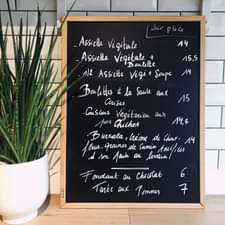 Sur place
Assiette Végétale 14
Assiette Végétale + 15,5
Boulette
1/2 Assiette Végé + Soupe 14
Boulettes à la Sauce aux 15
Cerises
Couscous Végétarien aux
pois Chiches 14,5
Burrata, Crème de
graines de Cumin 14
& son Pain au levain
Fondant au Chocolat 6
Tarte aux Pommes 7